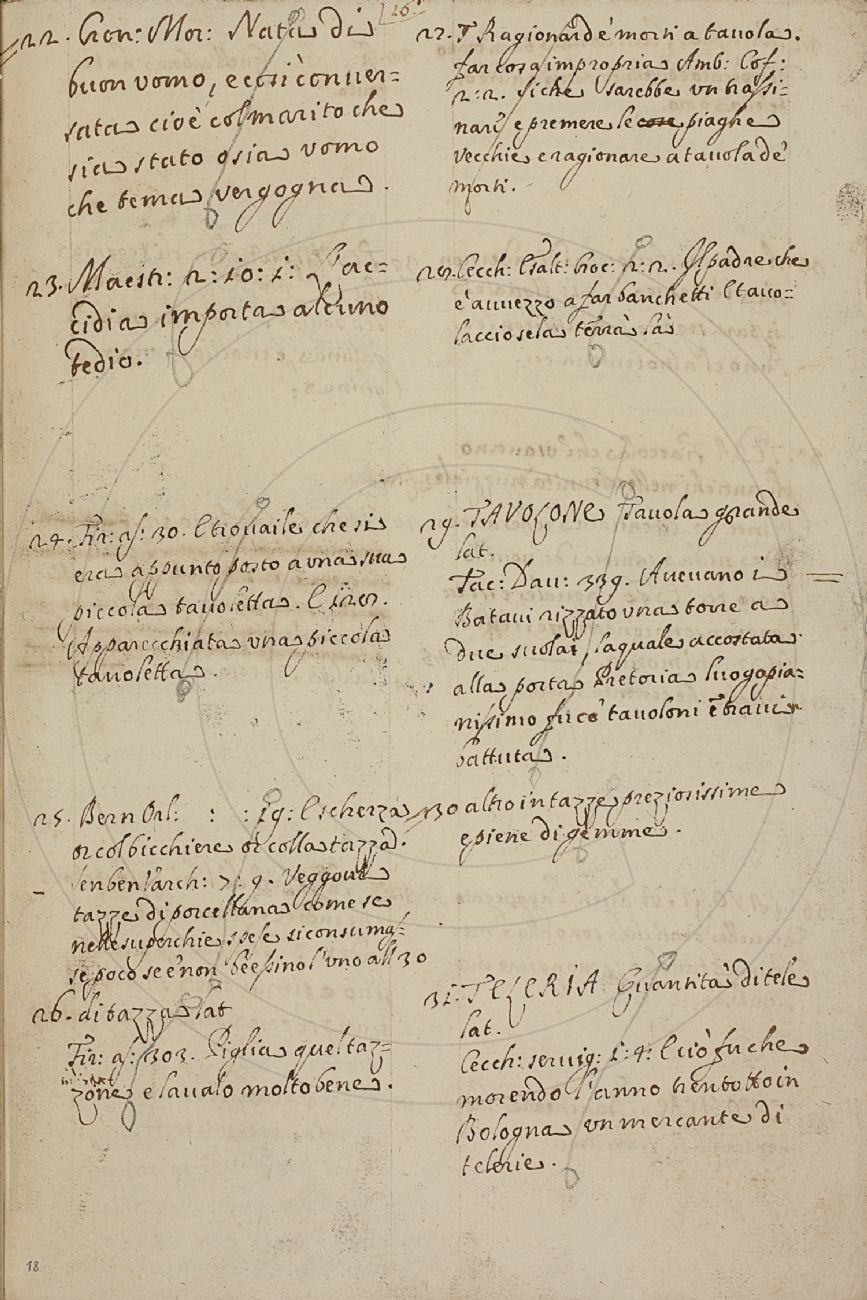 16
22. Cron: Mor: Nata di
buon uomo, e così conuer=
sata cioè col marito che
sia stato o sia uomo
che tema vergogna.
23. Maestr: 2: 10: 1: L'ac=
cidia importa alcuno
tedio.
24. Fir: as: 30. E trouaile che si
era appunto posto a una sua
piccola tauoletta. E 128.
Apparecchiata una piccola
tauoletta.
25. Bern Orl: : : 19: E scherza
or col bicchiere or colla tazza.
Senben Varch: 7: 9. Veggonsi
tazze di porcellana come se
nelle superchie spese si consumas=
se poco se e' non beessino l'uno all' 30
26. di tazza lat
Fir: as: 303. Piglia quel taz=
zone e laualo molto bene.
27. T Ragionar de' morti a tauola.
far cosa impropria Amb: Cof:
2: 2. Siche sarebbe un trassi=
nare e premere le cose piaghe
vecchie e ragionare a tauola de'
morti.
28. Cecch: Esalt: Croc: 2: 2. Il padre che
è auuezzo a far banchetti E tauo=
laccio se la terrà là
29. TAVOLONE Tauola grande
lat.
Tac: Dau: 339. Aueuano i
Bataui rizzato una torre a
due suolai, laquale accostata
alla porta Pretoria luogo pia=
nissimo fu co' tauoloni e traui
battuta.
30 altro in tazze preziosissime
e piene di gemme.
31. TELERIA Quantità di tele
lat.
Cecch: seruig: 1: 4: E ciò fu che
morendo l'anno trentotto in
Bologna un mercante di
telerie.
18